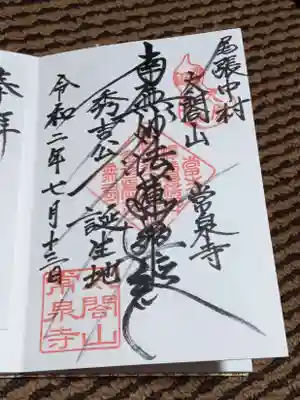 尾張中村
太閤山
常泉寺
南無妙法蓮華経
秀吉公
誕生地
令和二年七月十三日
太閤山
常泉寺
奉拝